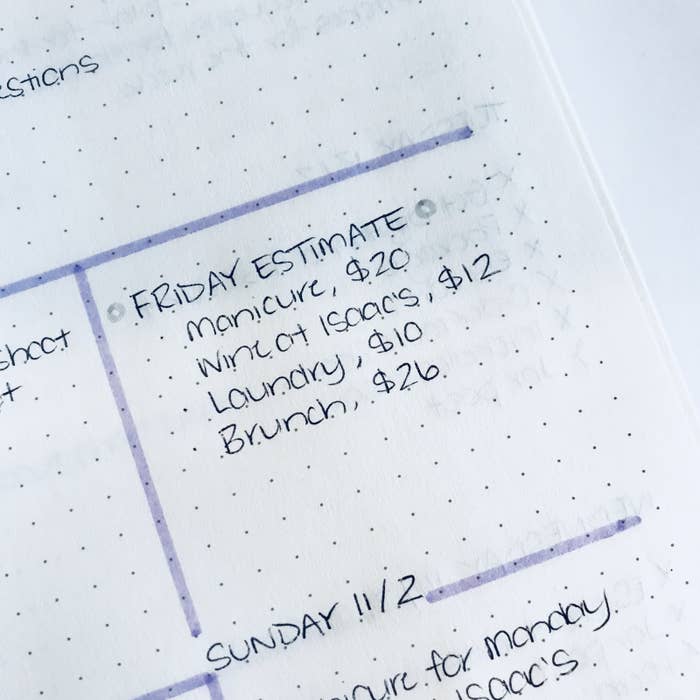 FRIDAY ESTIMATE
manicure, $20
Wine at Isaac's, $12
Laundry, $10
Brunch, $26
SUNDAY 11/2
for monday
Isaac's